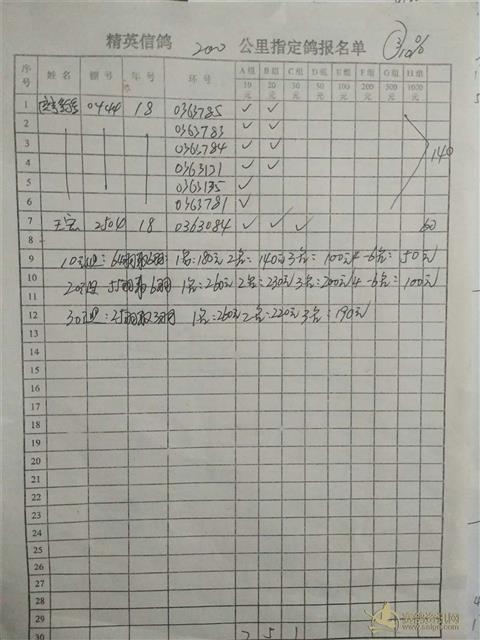 精英信鸽 200 公里指定鸽报名单 10%
序号 姓名 棚号 年号 环号 A组 B组 C组 D组 E组 F组 G组 H组
10元 20元 30元 50元 100元 200元 500元 1000元
1 0444 18 0363785 ✓ ✓
2 0363783 ✓ ✓
3 0363784 ✓ ✓ 140
4 0363121 ✓ ✓
5 0363135 ✓
6 0363781 ✓
7 王宏 2504 18 0363084 ✓ ✓ ✓ 60
8
9 10元组: 64羽取6羽: 1名:180元 2名:140元 3名:100元 4-6名:50元
10 20元组 55羽取6羽 1名:260元 2名:230元 3名:200元 4-6名:100元
11
12 30元组:25羽取3羽 1名:260元 2名:220元 3名:190元
13
14
15
16
17
18
19
20
21
22
23
24
25
26
27
28
29
30 2 5 1